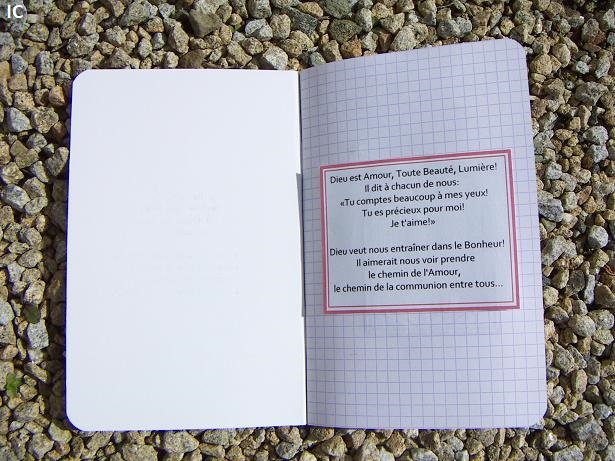 IC
Dieu est Amour, Toute Beauté, Lumière!
Il dit à chacun de nous:
«Tu comptes beaucoup à mes yeux!
Tu es précieux pour moi!
Je t'aime!»
Dieu veut nous entraîner dans le Bonheur!
Il aimerait nous voir prendre
le chemin de l'Amour,
le chemin de la communion entre tous...